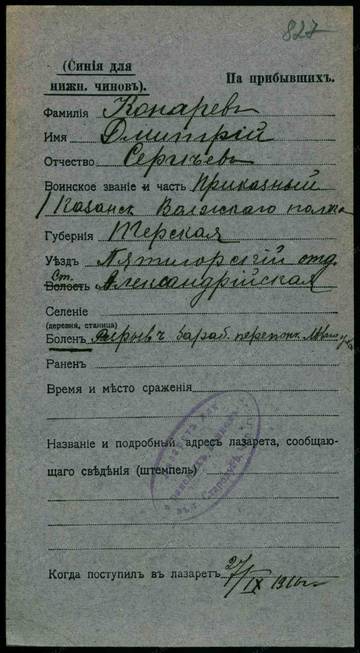 827
(Синія для
нижн. чиновъ).
На прибывшихъ.
Фамилія Конаревъ
Имя Дмитрій
Отчество Сергѣевъ
Воинское званіе и часть Приказный
1 Казанск Волжскаго полка
Губернія Терская
Уѣздъ Пятигорскій отд.
Ст.
Волость Александрійская
Селеніе
(деревня, станица)
Боленъ барабан. перепонк.
Раненъ
Время и мѣсто сраженія
Названіе и подробный адресъ лазарета, сообщаю-
щаго свѣдѣнія (штемпель)
Когда поступилъ въ лазаретъ 27/IX 1916 г.